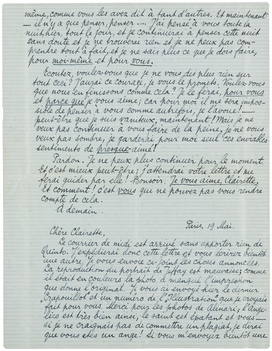 même, comme vous les avez dit à tant d'autres. Et maintenant
— il n'y a que penser, penser — J'ai pensé à vous toute la
nuit hier, tout le jour, et je continuerai à penser cette nuit
sans doute et je ne trouverai rien et je ne peux pas com-
prendre tout à fait, et je ne sais plus ce que je dois faire,
pour moi-même et pour vous.
Écoutez, voulez-vous que je ne vous dise plus rien sur
tout ceci? J'aurai ce courage, je vous le promets. Voulez-vous
que nous en finissons comme cela? Je le ferai, pour vous
et parce que je vous aime, car pour moi il me sera impos-
sible de penser à vous comme autrefois, je l'avoue! —
peut-être que je suis vaniteux, maintenant! Mais je ne
veux pas continuer à vous faire de la peine, je ne vous
veux pas sombre, je garderai pour moi seul ces
sentiments de presque-aimé!
Pardon. Je ne peux plus continuer pour le moment
et c'est mieux peut-être; j'attendrai votre lettre et me
ferai guider par elle! Bonsoir. Je vous aime, Clairette,
Et comment! c'est vous qui ne pouvez pas vous rendre
compte de cela.
A demain.
Paris, 19 Mai.
Chère Clairette,
Le courrier de midi est arrivé sans apporter rien de
Quinto. J'expédierai donc cette lettre et vous serrez bientôt
une autre. Je vous envoie ci-joint les choses annoncées.
La reproduction du portrait de est mauvaise; comme
il était en couleurs la photo a manqué l'impression
que donne l'original. Je vous ai envoyé hier le dernier
Crapouillot et un numéro de l'"Illustration" que je croyais
fait pour vous
lie est très bien ainsi, le saint est debout et —
si je ne craignais pas de commettre un plagiat, je dirai
que vous êtes un ange! Si vous m'envoyez bientôt une